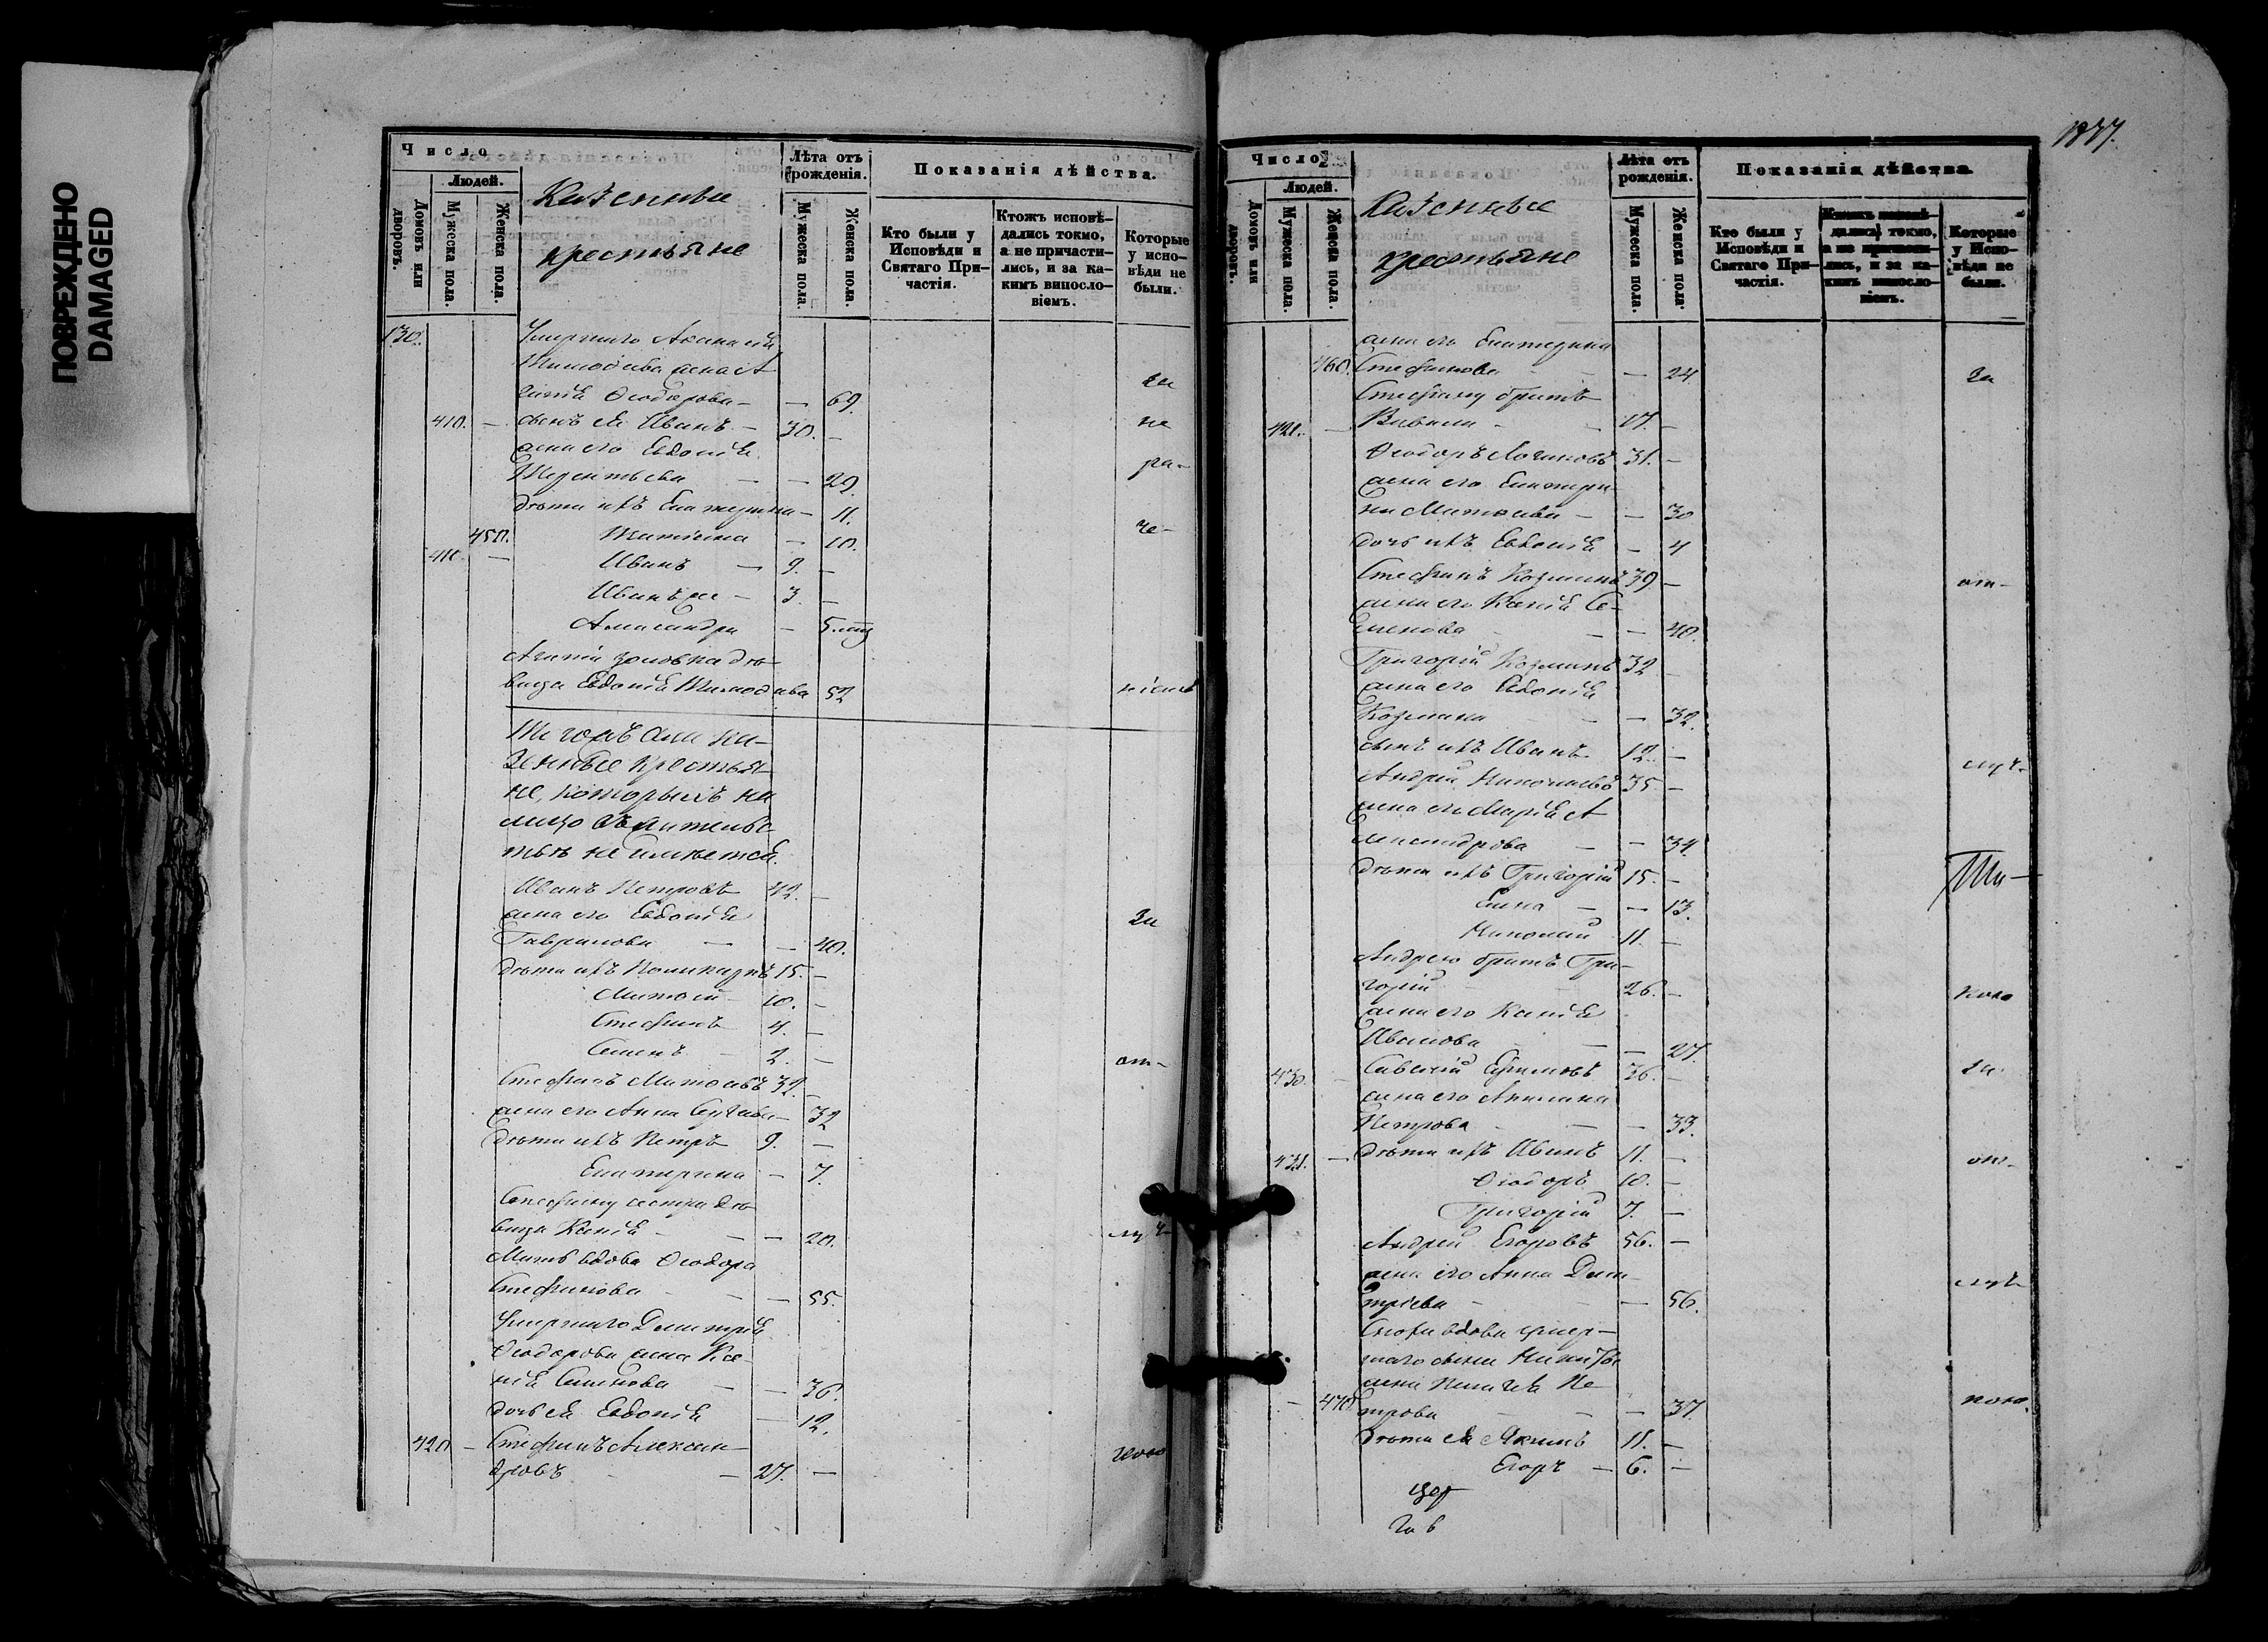 ПОВРЕЖДЕНО
DAMAGED
Число
Людей.
Домовъ или дворовъ.
Мужеска пола.
Женска пола.
Казенные
крестьяне
Лѣта отъ рожденія.
Мужеска пола.
Женска пола.
Показанія дѣйства.
Кто были у Исповѣди и Святаго Причастія.
Ктожъ исповѣдались токмо, а не причастились, и за какимъ винословіемъ.
Которые у исповѣди не были.
130.
Умершаго
жена А
гапія Ѳеодорова — — 69.
за
410. — сынъ ея Иванъ — 30. —
не
жена его Евдокія
Терентьева — — 29.
ра-
дѣти ихъ Екатерина — 11.
че-
450. Татіана — 10.
410. — Иванъ — 9. —
Иванъ же — 3. —
Александра — 5.
Агапіи золовка дѣ
вица Евдокія 52
ніемъ
Тѣ
зенные крестья
не, которыхъ на
лицо въ жительс
твѣ не имѣется.
Иванъ Петровъ 42. —
жена его Евдокія
за
Гаврилова — — 40.
дѣти ихъ 15. —
Матвѣй 10. —
Стефанъ 4. —
Семенъ 2. —
от-
Стефанъ Матвѣевъ 32. —
жена его Анна 32
дѣти ихъ Петръ 9. —
Екатерина — 7.
Стефану сестра дѣ
вица Ксенія — — 20.
луч-
Мать вдова Ѳеодора
Стефанова — — 55.
Умершаго Димитрія
Ѳеодорова жена Ксе
нія Семенова — — 36.
дочь ея Евдокія — 12.
420 — Стефанъ Алексан-
дровъ — 27. —
1877.
Число
Людей.
Домовъ или дворовъ.
Мужеска пола.
Женска пола.
Казенные
крестьяне
Лѣта отъ рожденія.
Мужеска пола.
Женска пола.
Показанія дѣйства.
Кто были у Исповѣди и Святаго Причастія.
Ктожъ исповѣдались токмо, а не причастились, и за какимъ винословіемъ.
Которые у Исповѣди не были.
жена его Екатерина
460. Стефанова — — 24
за
Стефану братъ
421. — Вавила — 17. —
Ѳеодоръ Логиновъ 31. —
жена его Екатери
на Матвѣева — — 30
дочь ихъ Евдокія — 4
Стефанъ Козминъ 39. —
от-
жена его Ксенія Се-
менова — — 40.
Григорій Козминъ 32
жена его Евдокія
Козмина — — 32.
сынъ ихъ Иванъ 12. —
луч-
Андрей Николаевъ 35 —
жена его Марія А
лександрова — — 34.
дѣти ихъ Григорій 15. —
Елена — — 13.
Николай 11. —
Андрею братъ Гри-
горій 26. —
жена его Ксенія
Иванова — — 27.
430. Савелій 36. —
за
жена его Акилина
Петрова — — 33.
431. — дѣти ихъ Иванъ 11. —
от-
Ѳеодоръ 10. —
Григорій 7. —
Андрей Егоровъ 56. —
жена его Анна Дми
луч-
тріева — — 56.
Сноха вдова умер-
шаго сына Никиты
жена Пелагея Пе
— 470. трова — — 37.
дѣти ея Акимъ 11. —
Егоръ — 6. —